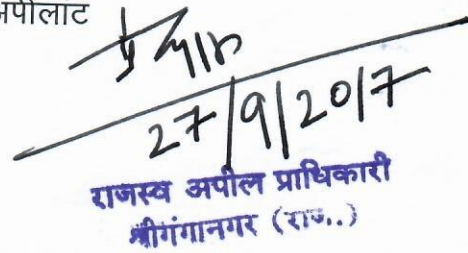 अपीलांट
27/9/2017
राजस्व अपील प्राधिकारी
श्रीगंगानगर (राज..)